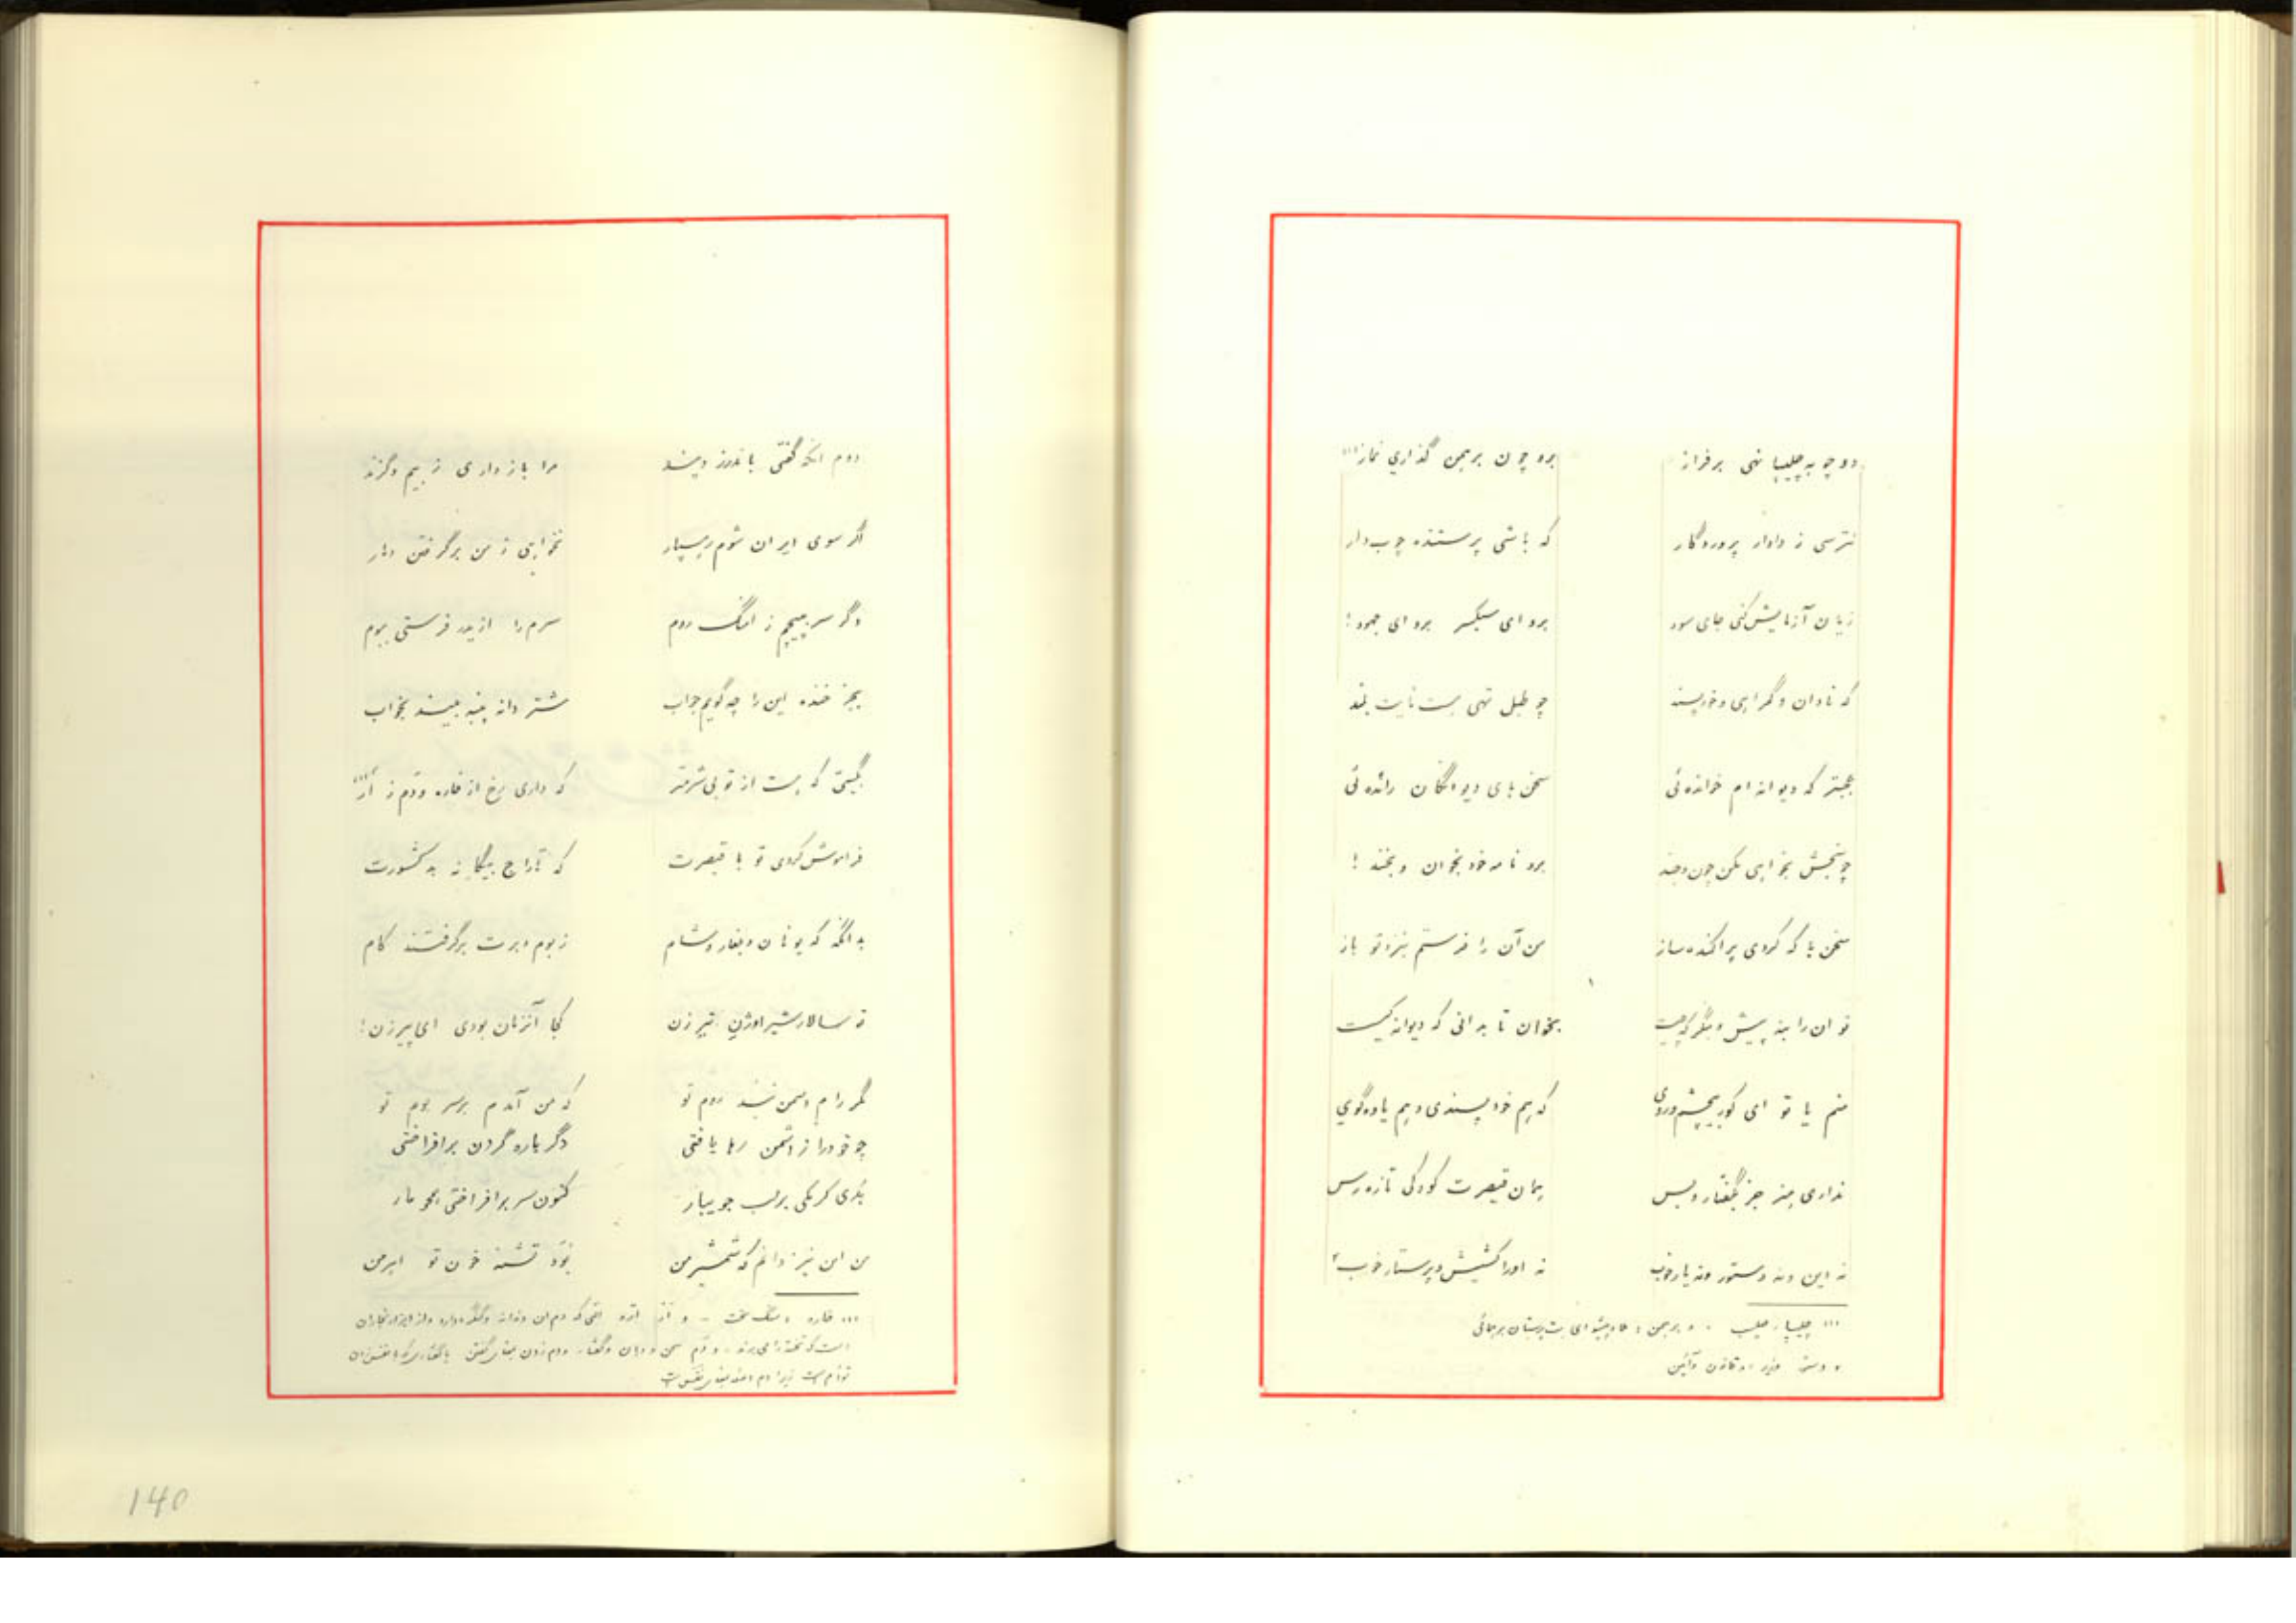 دو چوبه چلیپا نهی بر فراز برو چون برهمن گذاری نماز (۱)
نترسی ز دادار پروردگار که باشی پرستنده چوب دار
زیان آزمایش کنی جای سود برو ای سبکسر برو ای جهود!
که نادان و گمراهی و خودپسند چو طبل تهی هست نایت بلند
عجبتر که دیوانه ام خوانده ئی سخن های دیوانگان رانده ئی
برو نامه خود بخوان و بخند!
سخن ها که کردی پراکنده ساز من آن را فرستم بنزد تو باز
تو آن را بنه پیش و بنگر که چیست بخوان تا بدانی که دیوانه کیست
منم یا تو ای کور بی‌چشم و روی که هم خودپسندی و هم یاوه‌گوی
نداری هنر جز بگفتار و بس همان قیصرت کودکی تازه رس
نه این و نه دستور و نه یار خوب نه او را کشیش و پرستار خوب ۲
(۱) چلیپا، صلیب - و برهمن پیشوای بت پرستان
۲ وزیر و قانون و آئین
دوم آنکه گفتی باندرز و پند مرا باز داری ز بیم و گزند
اگر سوی ایران شوم رهسپار نخواهی ز من برگرفتن دمار
وگر سر بپیچم ز آهنگ روم سرم را از ایدر فرستی بروم
بجز خنده این را چه گویم جواب شتر دانه پنبه بیند بخواب
بگیتی که هست از تو بی‌شرمتر که داری رخ از خاره و دم ز
فراموش کردی تو با قیصرت که تاراج بیگانه بد کشورت
بدانگه که یونان و بلغار و شام ز بوم و برت برگرفتند کام
تو سالار شیراوژن تیرزن کجا آنزمان بودی ای پیرزن!
مگر رام دشمن نشد روم تو که من آمدم بر سر بوم تو
چو خود را ز دشمن رها یافتی دگر باره گردن برافراختی
بدی کرمکی بر لب جویبار کنون سر برافراختی همچو مار
من این نیز دانم که شمشیر من بود تشنه خون تو اهرمن
(۱) خاره سنگ سخت - و دندانه
است که تخته را می‌برد - و دم زدن سخن گفتن
توام است زیرا دم
140